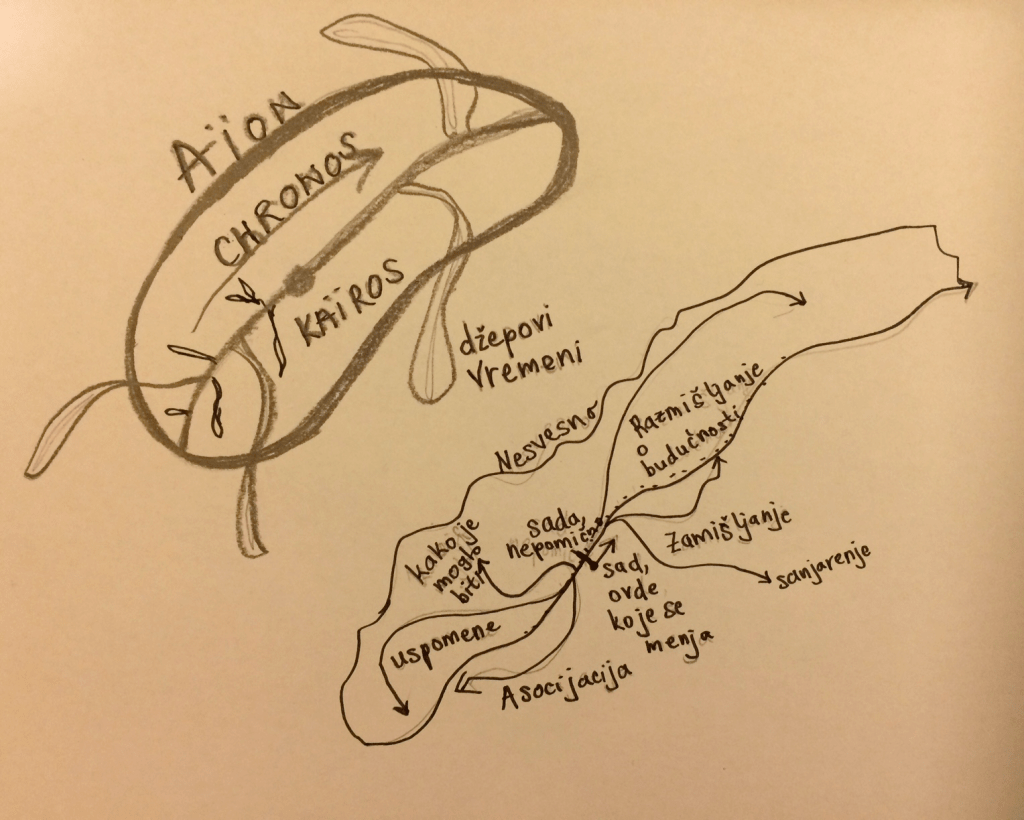 Aïon
CHRONOS
KAÏROS
džepovi
vremeni
Nesvesno
Razmišljanje
o
budučnosti
sada,
nepomično
kako je
moglo
biti
Zamišljanje
sanjarenje
sad,
ovde
koje se
menja
uspomene
Asocijacija